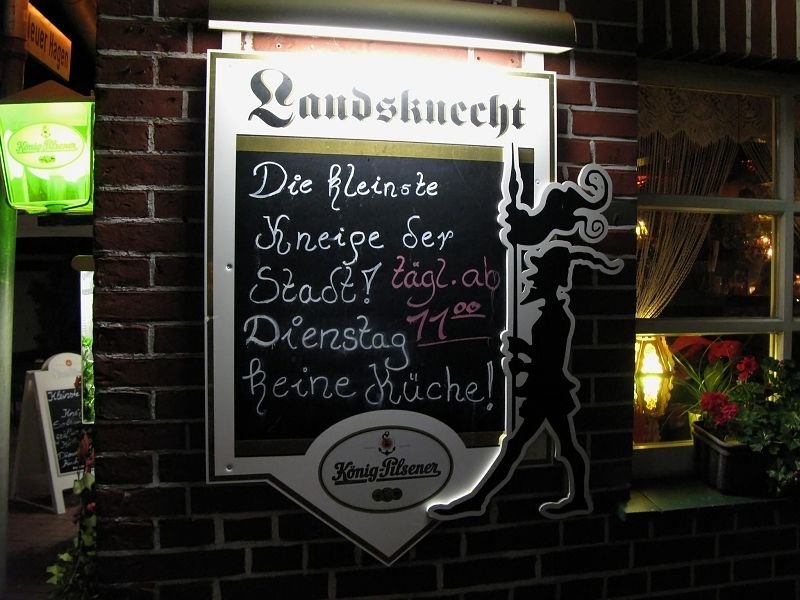 neuer Hagen
König-Pilsener
Landsknecht
Die kleinste
Kneipe der
Stadt! tägl. ab
Dienstag 11 00
keine Küche!
König-Pilsener
Kleinste